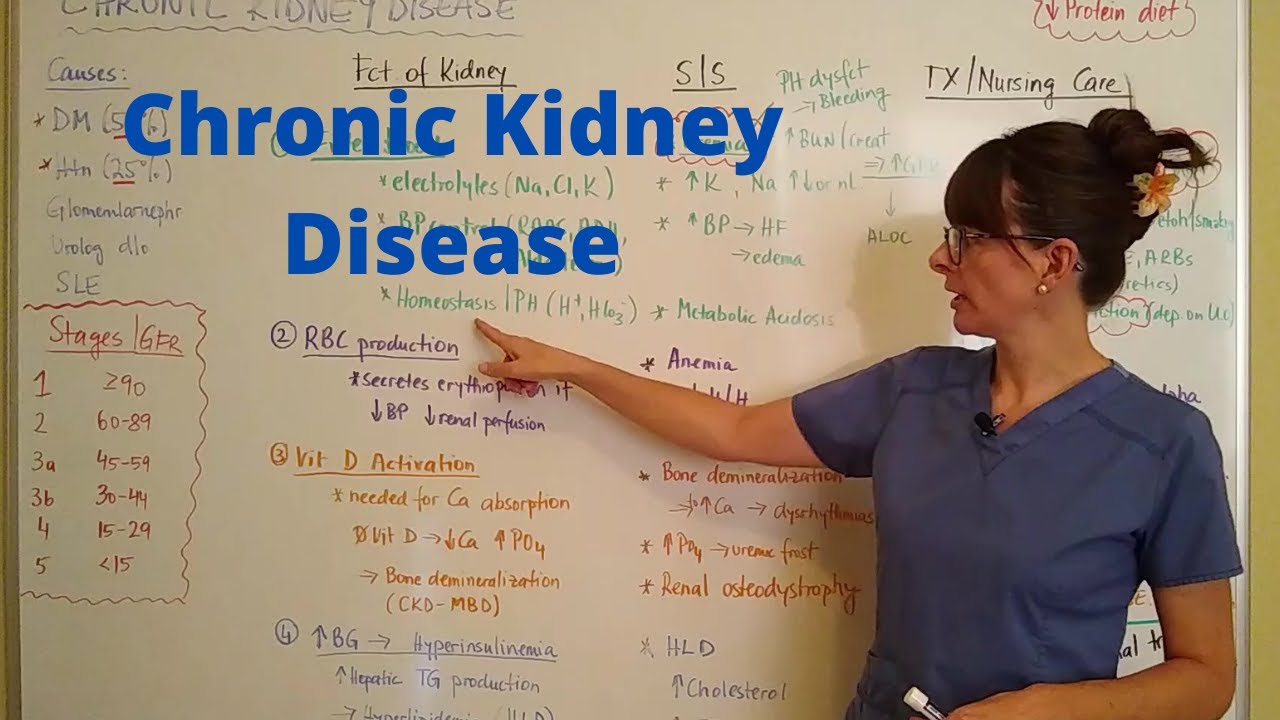 CHRONIC KIDNEY DISEASE
↓ Protein diet
Chronic Kidney
Disease
Causes:
* DM (5 %)
* Htn (25%)
Glomerularnephr
Urolog d/o
SLE
Stages | GFR
1 ≥90
2 60-89
3a 45-59
3b 30-44
4 15-29
5 <15
Fct of Kidney
* electrolytes (Na, Cl, K)
* BP control
* Homeostasis | PH (H+, HCO3-)
② RBC production
* secretes erythropoietin if
↓BP ↓renal perfusion
③ Vit D Activation
* needed for Ca absorption
Ø Vit D → ↓Ca ↑PO4
→ Bone demineralization
(CKD-MBD)
④ ↑BG → Hyperinsulinemia
↑Hepatic TG production
→ Hyperlipidemia (HLD)
S|S
PH dysfct
→ Bleeding
↑BUN/creat
* ↑K, Na ↑↓or nl
* ↑BP → HF
→ edema
↓
ALOC
* Metabolic Acidosis
* Anemia
* Bone demineralization
→ ↑Ca → dysrhythmias
* ↑PO4 → uremic frost
* Renal osteodystrophy
* HLD
↑Cholesterol
TX/Nursing Care
etoh/smoking
, ARBs
(dep. on U.O)